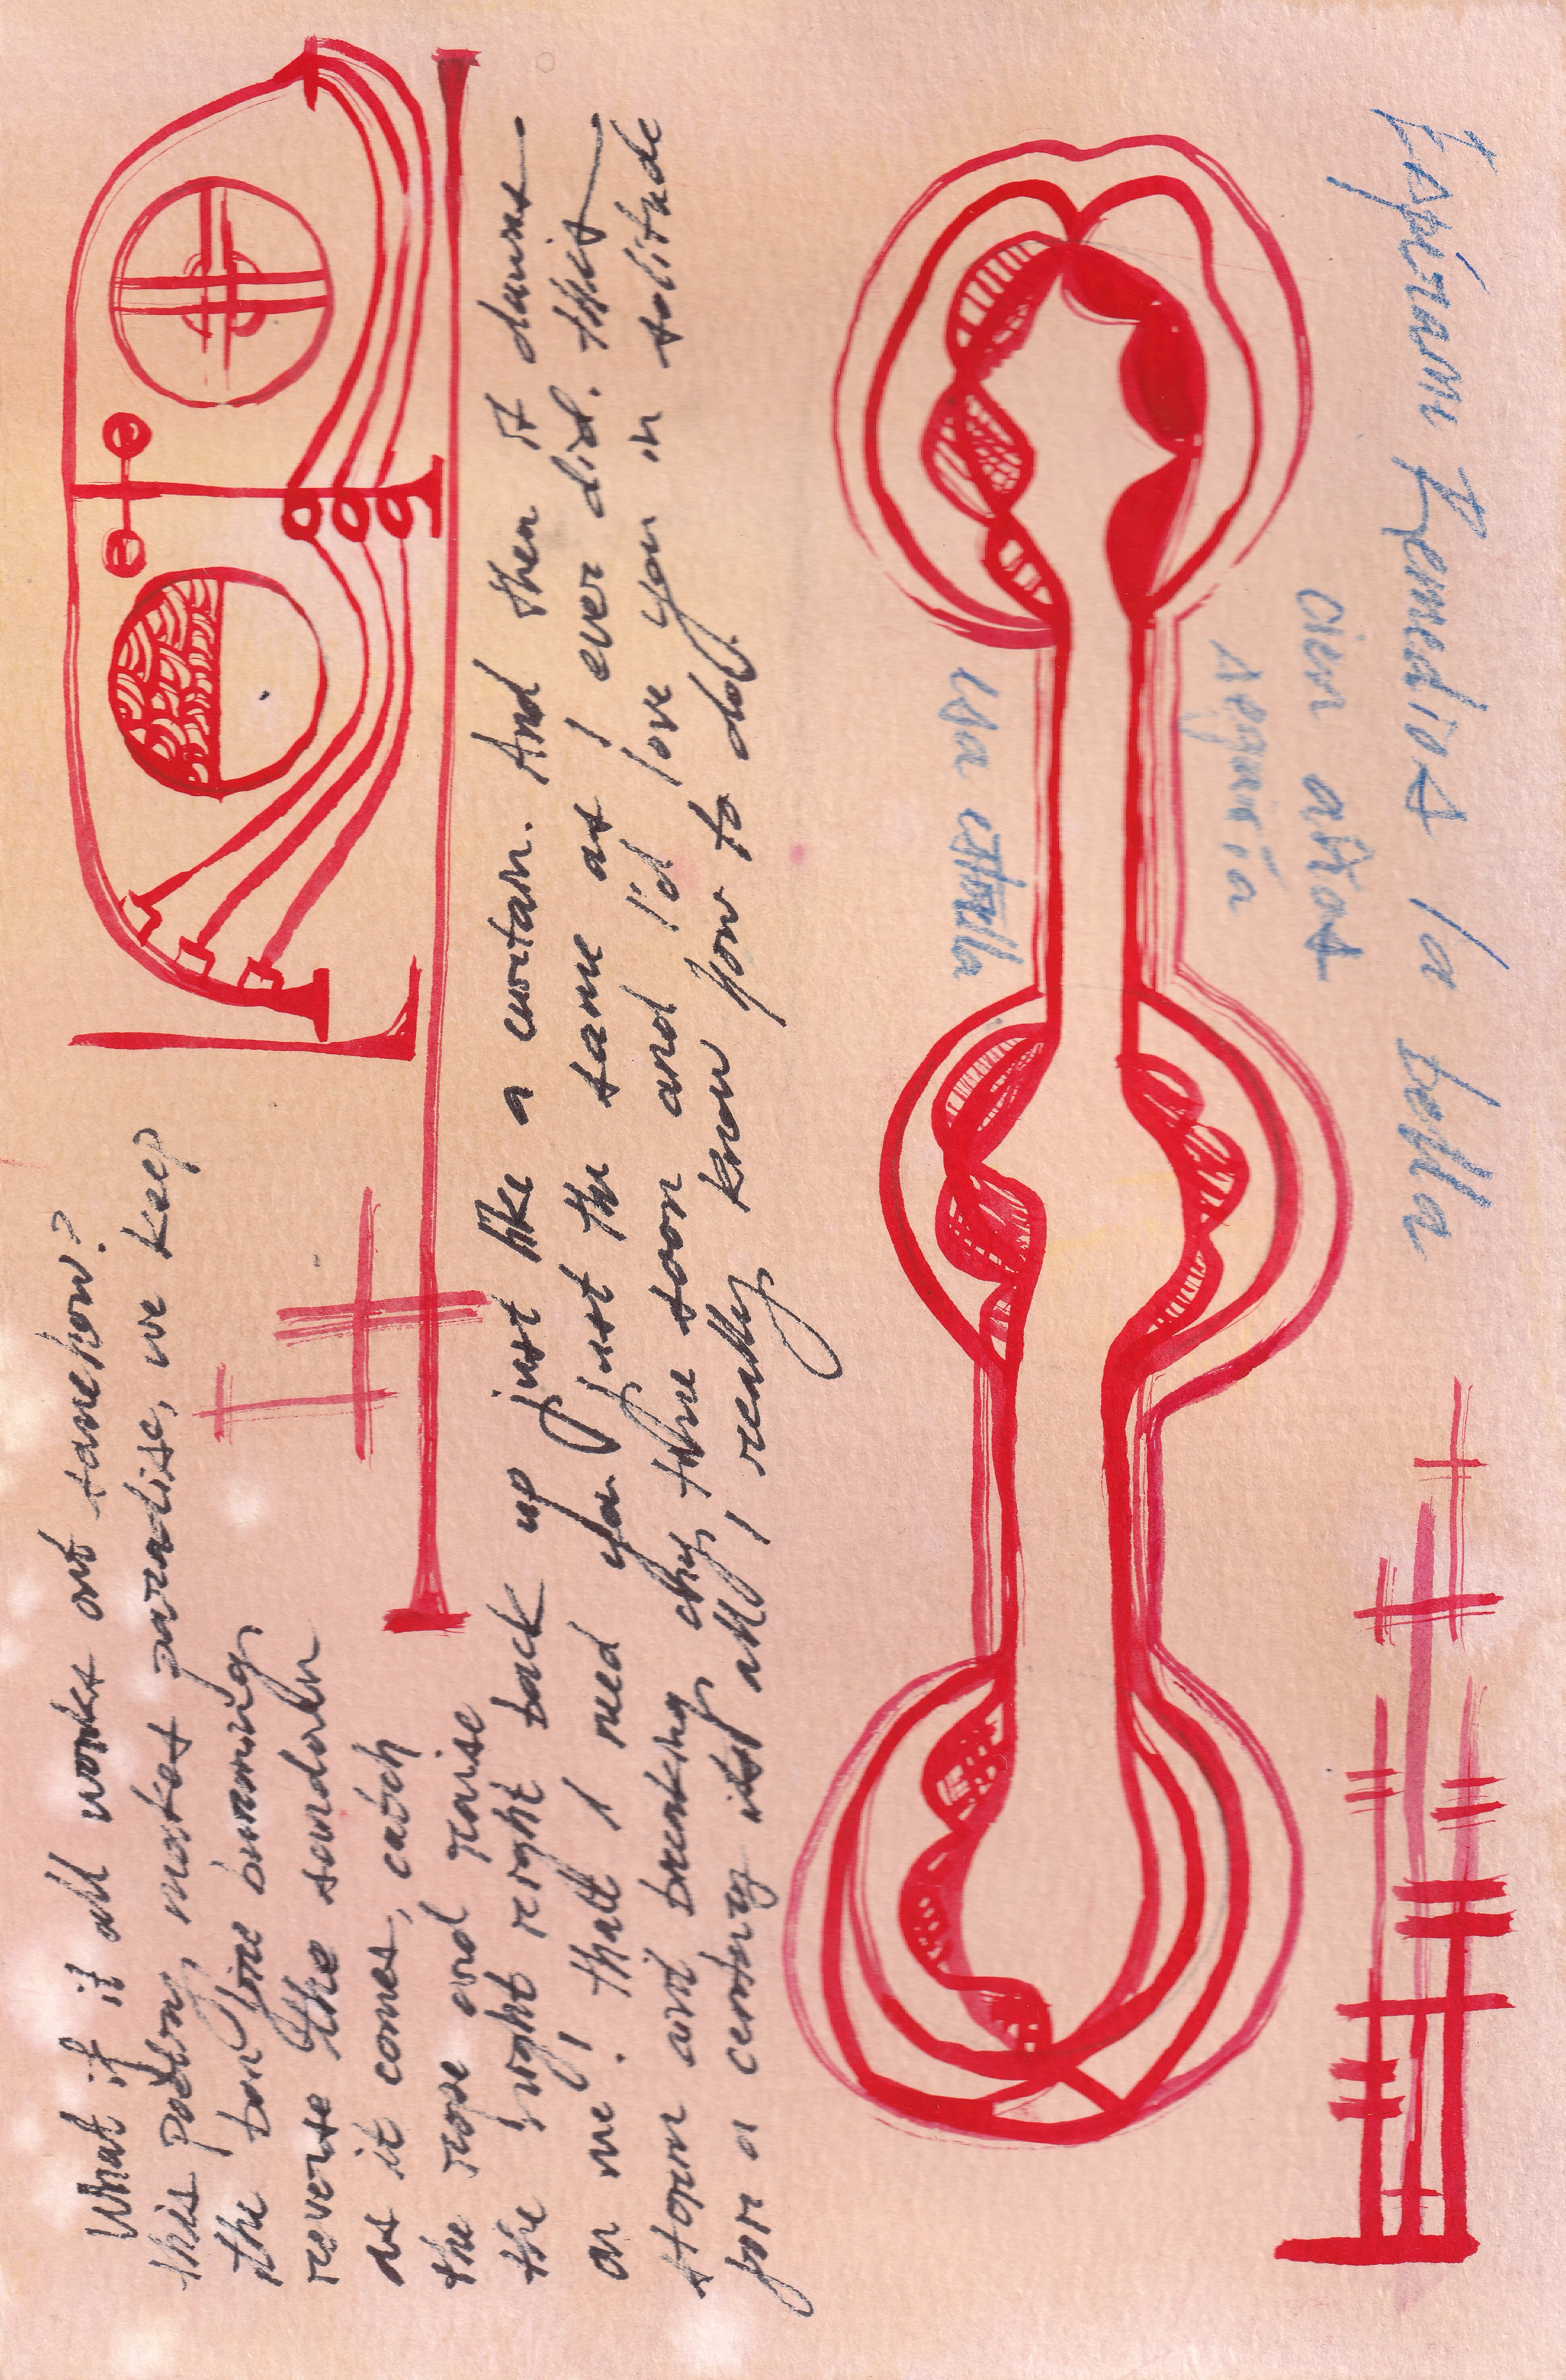 What if it all works out somehow?
this poetry makes paradise, we keep
the bonfire burning,
reverse the sundown
as it comes, catch
the rope and raise
the night right back up just like a curtain. And then it dawns
on me! that I need you just the same as I ever did. this
storm ain't breaking any time soon and I'd love you in solitude
for a century its all I really know how to do.
Remedios la bella
cien años